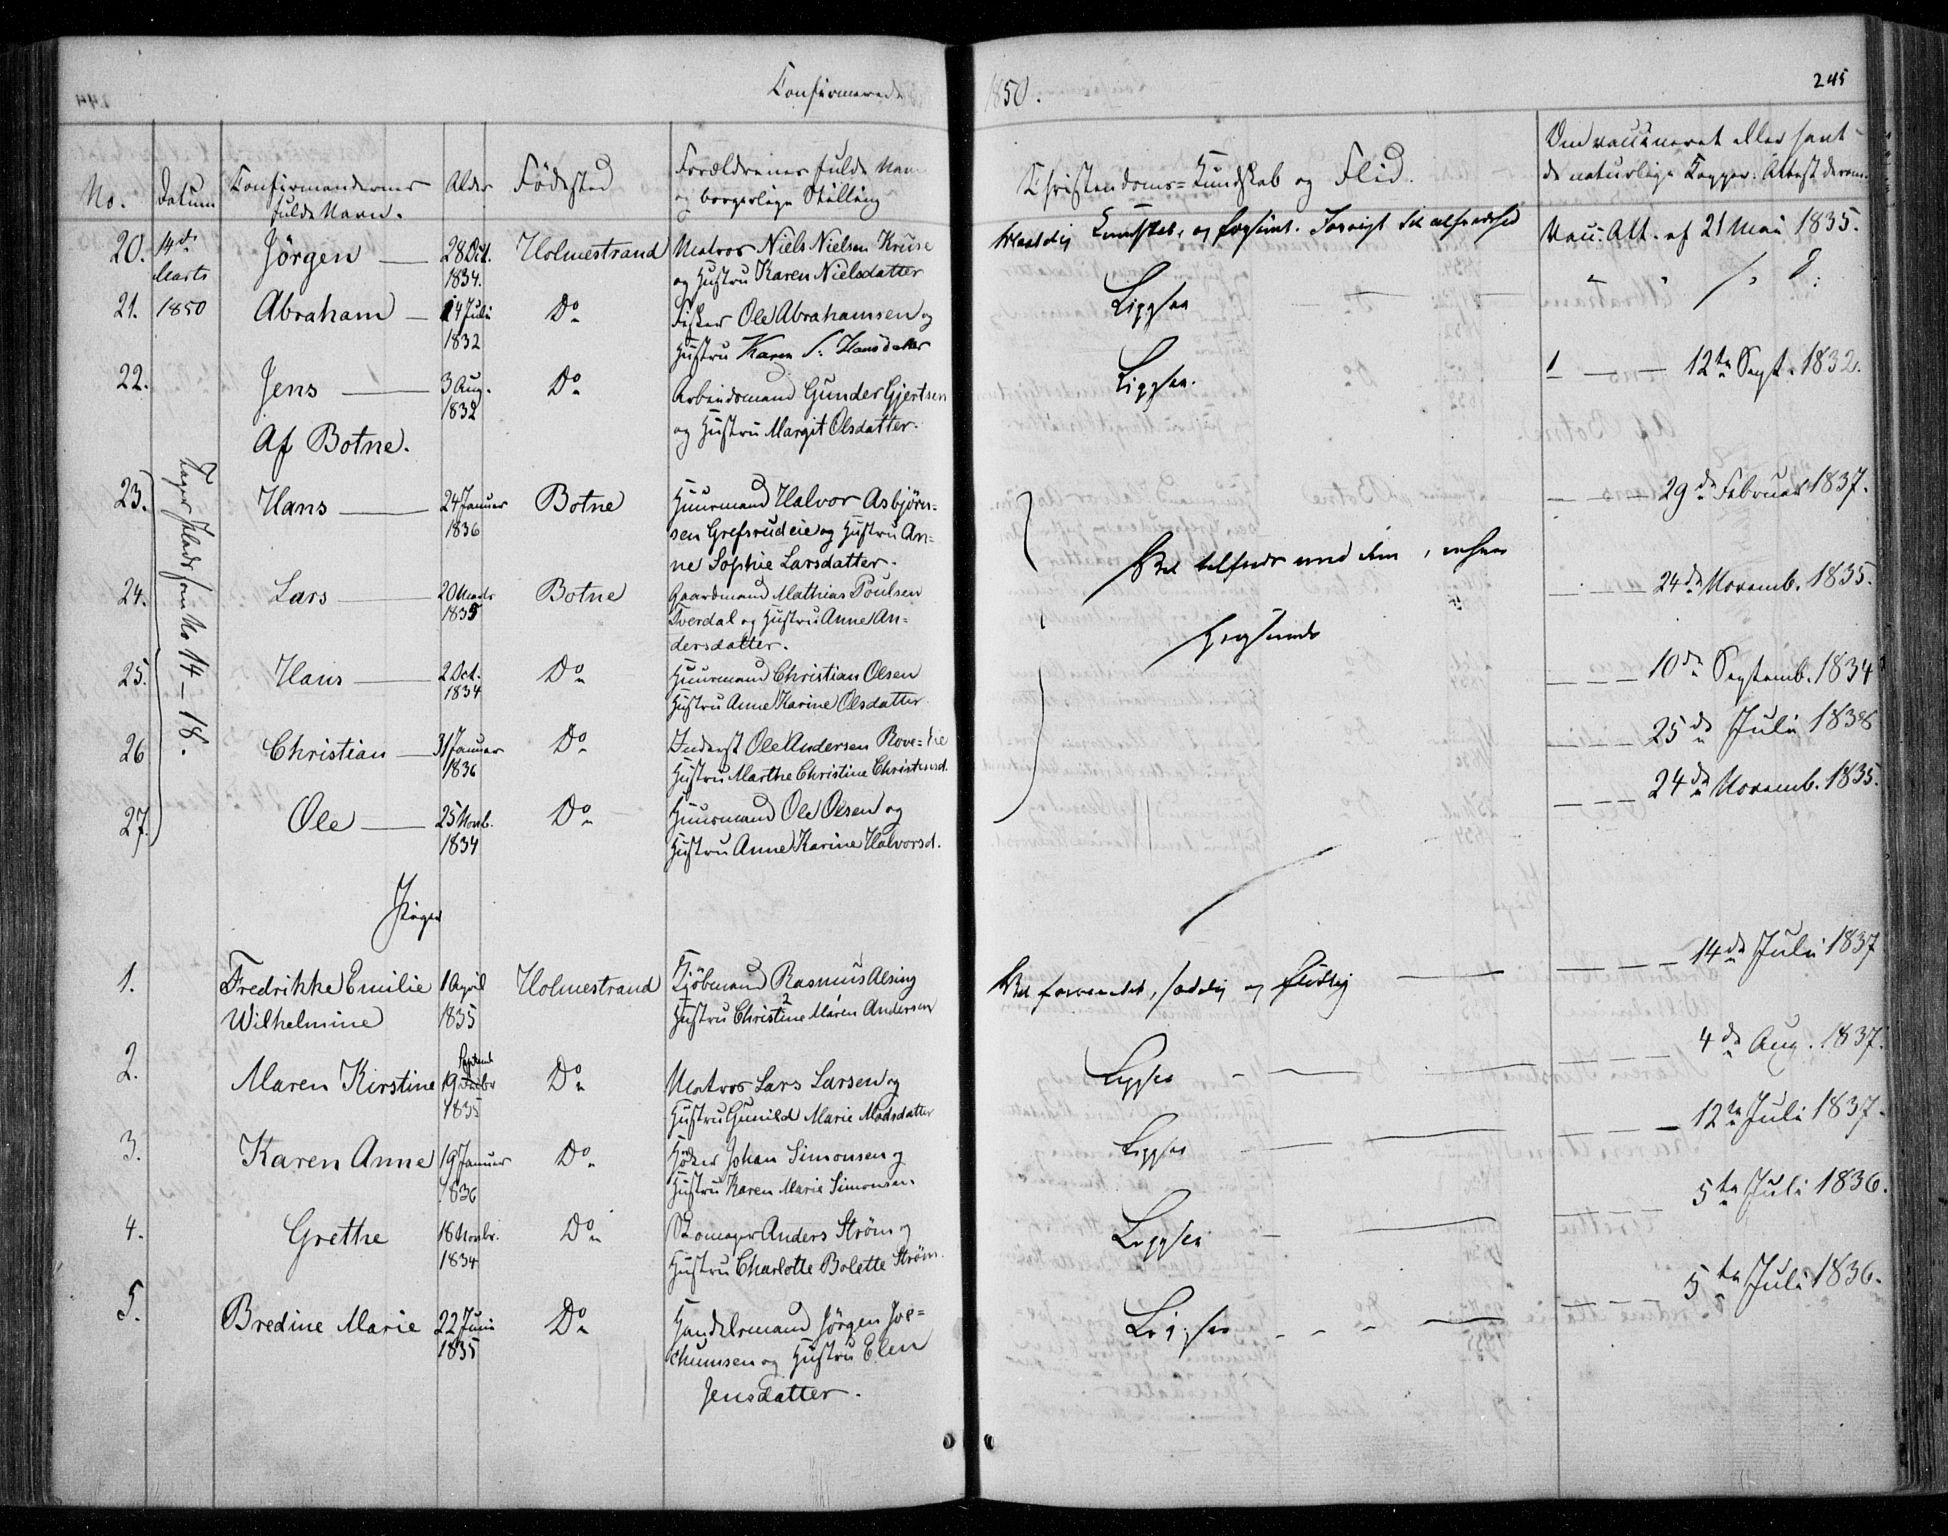 Confirmerede
1850.
245
No.
Datum
Confirmandernes fulde Navn.
Alder
Fødested
Forældrenes fulde Navn og borgerlige Stilling
Christendoms=Kundskab og Flid.
Om vaccineret eller havt de naturlige Kopper: Attest derom.
20. 14de Marts 1850 Jörgen — 28 Oct. 1834. Holmestrand Matros Niels Nielsen Kruse
og Hustru Karen Nielsdatter
Maadelig Kundskab, og
Vacc. Att. af 21 Mai 1835.
21. Abraham — 14 Juli 1832 Do Fisker Ole Abrahamsen og
Hustru Karen S. Hansdatter
Ligesaa
22. Jens — 3 Aug. 1832 Do Arbeidsmand Gunder Gjertsen
og Hustru Margit Olsdatter.
Ligesaa.
— 12te Sept. 1832.
Af Botne.
Tager Plads fra No 14 – 18.
23. Hans — 24 Januar 1836 Botne Huusmand Halvor Asbjörn=
sen Grefsrudeie og Hustru An=
ne Sophie Larsdatter.
— 29de Februar 1837.
24. Lars — 20 Marts 1835 Botne Gaardmand Mathias Poulsen
Tverdal og Hustru Anne An=
dersdatter.
— 24de Novemb. 1835.
25. Hans — 2 Oct. 1834 Do Huusmand Christian Olsen
Hustru Anne Karine Olsdatter
— 10de Septemb. 1834
26 Christian — 31 Januar 1836 Do Inderst Ole Andersen Rove=eie
Hustru Marthe Christine Christensd.
— 25de Juli 1838
27. Ole — 25 Novb. 1834 Do Huusmand Ole Olsen og
Hustru Anne Karine Halvorsd.
— 24de Novemb. 1835.
Piger
1. Fredrikke Emilie Wilhelmine 1 April 1835 Holmestrand Kjöbmand Rasmus Alsing
Hustru Christine Maren Andersen
Vel forvandet, sædelig og flittig —
— 14de Juli 1837
2. Maren Kirstine 19 Septemb 1835 Do Matros Lars Larsen og
Hustru Gunild Marie Madsdatter
Ligesaa —
— 4de Aug. 1837.
3. Karen Anne 19 Januar 1836 Do Höker Johan Simonsen og
Hustru Karen Marie Simonsen.
Ligesaa —
— 12te Juli 1837.
4. Grethe 18 Novbr. 1834 Do Skomager Anders Ström og
Hustru Charlotte Bolette Ström.
Ligesaa —
— 5te Juli 1836.
5. Bredine Marie 22 Juni 1835 Do Handelsmand Jörgen Joc=
chumsen og Hustru Elen
Jensdatter.
Ligesaa —
— 5te Juli 1836.